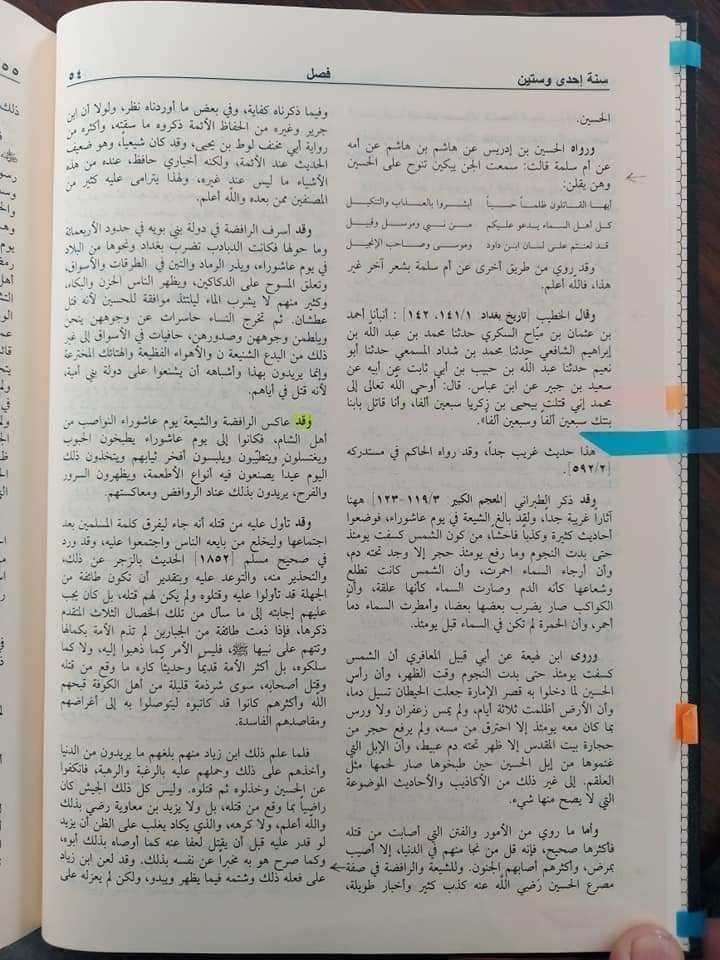 سنة إحدى وستين
فصل
٥٤
الحسين.
ورواه الحسين بن إدريس عن هاشم بن هاشم عن أمه
عن أم سلمة قالت: سمعت الجن يبكين تنوح على الحسين
وهن يقلن:
أيها القاتلون ظلماً حسيناً أبشروا بالعذاب والتنكيل
كل أهل السماء يدعو عليكم من نبي ومرسل وقبيل
قد لعنتم على لسان ابن داود وموسى وصاحب الإنجيل
وقد روي من طريق أخرى عن أم سلمة بشعر آخر غير
هذا، فالله أعلم.
وقال الخطيب [تاريخ بغداد ١٤١/١، ١٤٢] : أنبأنا أحمد
بن عثمان بن ميّاح السكري حدثنا محمد بن عبد الله بن
إبراهيم الشافعي حدثنا محمد بن شداد المسمعي حدثنا أبو
نعيم حدثنا عبد الله بن حبيب بن أبي ثابت عن أبيه عن
سعيد بن جبير عن ابن عباس. قال: أوحي الله تعالى إلى
محمد إني قتلت بيحيى بن زكريا سبعين ألفاً، وأنا قاتل بابنا
بنتك سبعين ألفاً وسبعين ألفاً».
هذا حديث غريب جداً، وقد رواه الحاكم في مستدركه
[٥٩٢/٢].
وقد ذكر الطبراني [المعجم الكبير ١١٩/٣-١٢٣] ههنا
آثاراً غريبة جداً، ولقد بالغ الشيعة في يوم عاشوراء، فوضعوا
أحاديث كثيرة وكذباً فاحشاً، من كون الشمس كسفت يومئذ
حتى بدت النجوم وما رفع يومئذ حجر إلا وجد تحته دم،
وأن أرجاء السماء احمرت، وأن الشمس كانت تطلع
وشعاعها كأنه الدم وصارت السماء كأنها علقة، وأن
الكواكب صار يضرب بعضها بعضا، وأمطرت السماء دماً
أحمر، وأن الحمرة لم تكن في السماء قبل يومئذ.
وروى ابن لهيعة عن أبي قبيل المعافري أن الشمس
كسفت يومئذ حتى بدت النجوم وقت الظهر، وأن رأس
الحسين لما دخلوا به قصر الإمارة جعلت الحيطان تسيل دماً،
وأن الأرض أظلمت ثلاثة أيام، ولم يمس زعفران ولا ورس
بما كان معه يومئذ إلا احترق من مسه، ولم يرفع حجر من
حجارة بيت المقدس إلا ظهر تحته دم عبيط، وأن الإبل التي
غنموها من إبل الحسين حين طبخوها صار لحمها مثل
العلقم. إلى غير ذلك من الأكاذيب والأحاديث الموضوعة
التي لا يصح منها شيء.
وأما ما روي من الأمور والفتن التي أصابت من قتله
فأكثرها صحيح، فإنه قل من نجا منهم في الدنيا، إلا أصيب
بمرض، وأكثرهم أصابهم الجنون. وللشيعة والرافضة في صفة
مصرع الحسين رضي الله عنه كذب كثير وأخبار طويلة،
وفيما ذكرناه كفاية، وفي بعض ما أوردناه نظر، ولولا أن ابن
جرير وغيره من الحفاظ الأئمة ذكروه ما سقته، وأكثره من
رواية أبي مخنف لوط بن يحيى، وقد كان شيعياً، وهو ضعيف
الحديث عند الأئمة، ولكنه أخباري حافظ، عنده من هذه
الأشياء ما ليس عند غيره، ولهذا يترامى عليه كثير من
المصنفين ممن بعده والله أعلم.
وقد أسرف الرافضة في دولة بني بويه في حدود الأربعمائة
وما حولها فكانت الدبادب تضرب ببغداد ونحوها من البلاد
في يوم عاشوراء، ويذر الرماد والتبن في الطرقات والأسواق،
وتعلق المسوح على الدكاكين، ويظهر الناس الحزن والبكاء،
وكثير منهم لا يشرب الماء ليلتئذ موافقة للحسين لأنه قتل
عطشان. ثم تخرج النساء حاسرات عن وجوههن ينحن
ويلطمن وجوههن وصدورهن، حافيات في الأسواق إلى غير
ذلك من البدع الشنيعة و الأهواء الفظيعة والهتائك المخترعة
وإنما يريدون بهذا وأشباهه أن يشنعوا على دولة بني أمية،
لأنه قتل في أيامهم.
وقد عاكس الرافضة والشيعة يوم عاشوراء النواصب من
أهل الشام، فكانوا إلى يوم عاشوراء يطبخون الحبوب
ويغتسلون ويتطيّبون ويلبسون أفخر ثيابهم ويتخذون ذلك
اليوم عيداً يصنعون فيه أنواع الأطعمة، ويظهرون السرور
والفرح، يريدون بذلك عناد الروافض ومعاكستهم.
وقد تأول عليه من قتله أنه جاء ليفرق كلمة المسلمين بعد
اجتماعها وليخلع من بايعه الناس واجتمعوا عليه، وقد ورد
في صحيح مسلم [١٨٥٢] الحديث بالزجر عن ذلك،
والتحذير منه، والتوعد عليه وبتقدير أن تكون طائفة من
الجهلة قد تأولوا عليه وقتلوه ولم يكن لهم قتله، بل كان يجب
عليهم إجابته إلى ما سأل من تلك الخصال الثلاث المتقدم
ذكرها، فإذا ذمت طائفة من الجبارين لم تذم الأمة بكمالها
وتتهم على نبيها ﷺ، فليس الأمر كما ذهبوا إليه، ولا كما
سلكوه، بل أكثر الأمة قديماً وحديثاً كاره ما وقع من قتله
وقتل أصحابه، سوى شرذمة قليلة من أهل الكوفة قبحهم
الله وأكثرهم كانوا قد كاتبوه ليتوصلوا به إلى أغراضهم
ومقاصدهم الفاسدة.
فلما علم ذلك ابن زياد منهم بلغهم ما يريدون من الدنيا
وأخذهم على ذلك وحملهم عليه بالرغبة والرهبة، فانكفوا
عن الحسين وخذلوه ثم قتلوه. وليس كل ذلك الجيش كان
راضياً بما وقع من قتله، بل ولا يزيد بن معاوية رضي بذلك
والله أعلم، ولا كرهه، والذي يكاد يغلب على الظن أن يزيد
لو قدر عليه قبل أن يقتل لعفا عنه كما أوصاه بذلك أبوه،
وكما صرح هو به مخبراً عن نفسه بذلك. وقد لعن ابن زياد
على فعله ذلك وشتمه فيما يظهر ويبدو، ولكن لم يعزله على
٥٥